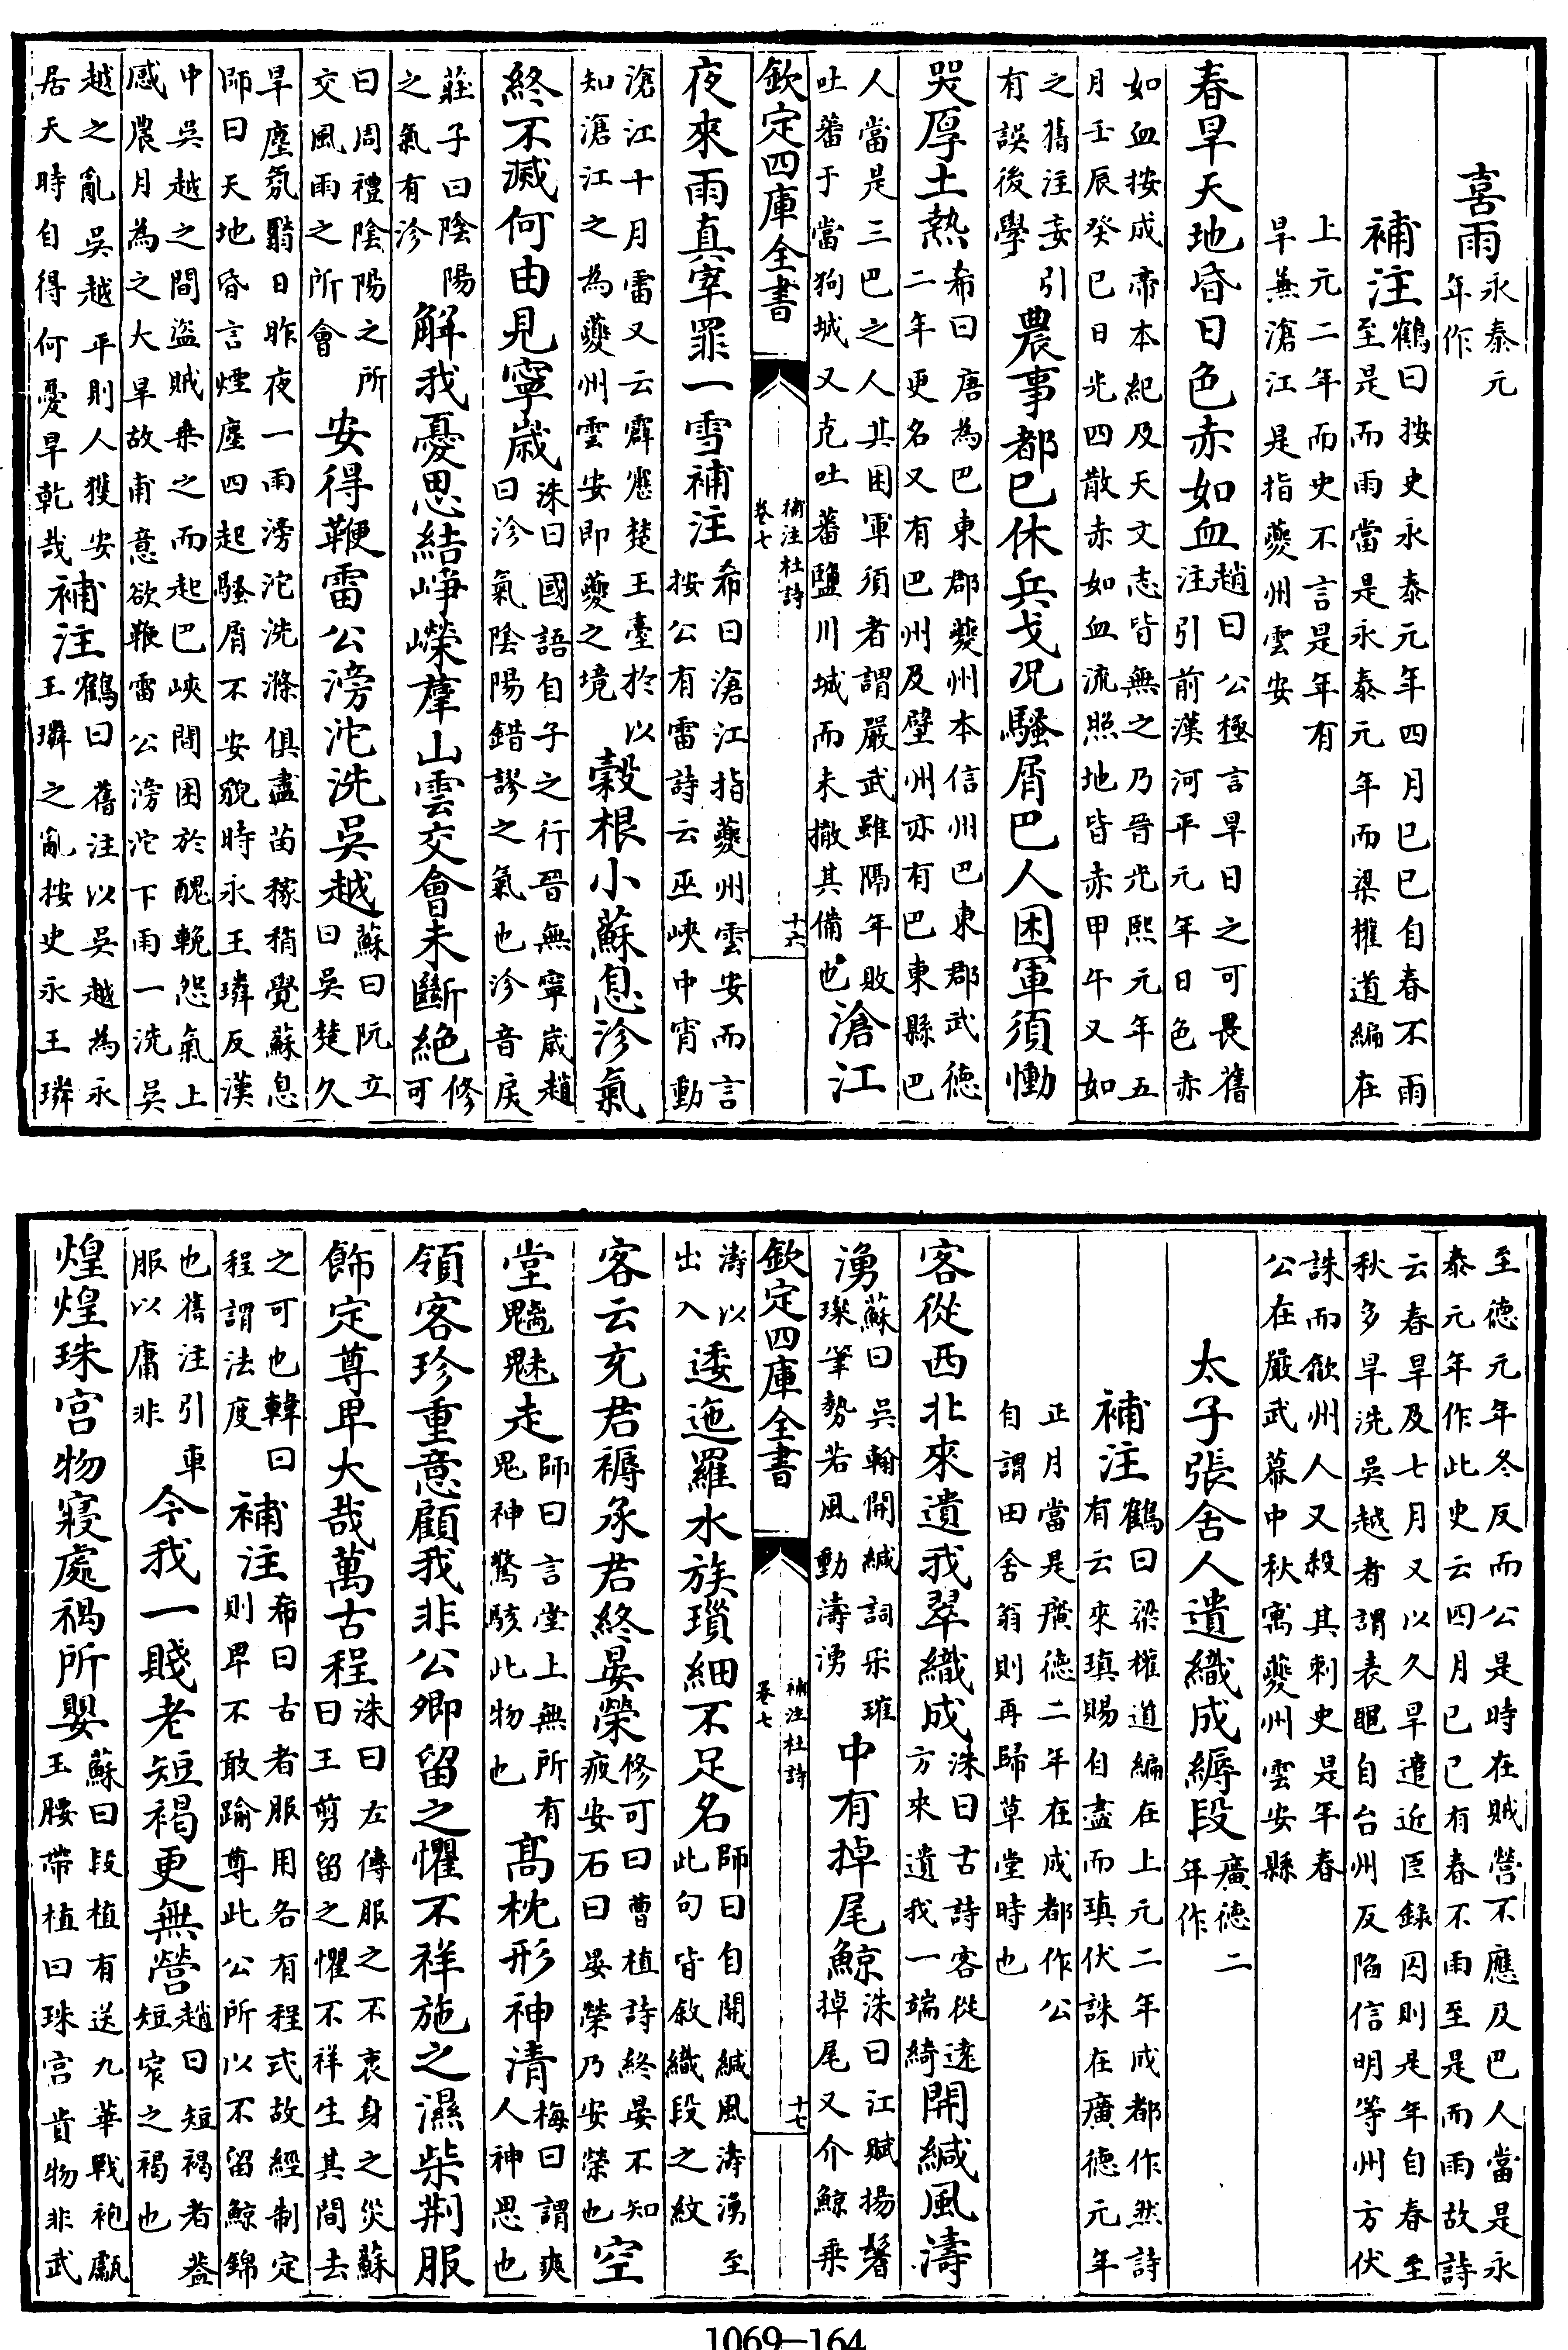 喜雨永泰元年作
補注鶴曰按史永泰元年四月己巳自春不雨至是而雨當是永泰元年而梁權道編在
上元二年而史不言是年有旱無滄江是指夔州雲安
春旱天地昏日色赤如血趙曰公極言旱日之可畏舊注引前漢河平元年日色赤
如血按成帝本紀及天文志皆無之乃晉光熙元年五月壬辰癸巳日光四散赤如血流照地皆赤甲午又如
之舊注妄引有誤後學農事都已休兵戈況騷屑巴人困軍須慟
哭厚土熱希曰唐為巴東郡夔州本信州巴東郡武德二年更名又有巴州及壁州亦有巴東縣巴
人當是三巴之人其困軍須者謂嚴武雖隔年敗吐蕃于當狗城又克吐蕃鹽川城而未撤其備也滄江
欽定四庫全書 補注杜詩卷七 十六
夜來雨真宰罪一雪補注希曰滄江指夔州雲安而言按公有雷詩云巫峽中宵動
滄江十月雷又云霹靂楚王臺於以知滄江之為夔州雲安即夔之境穀根小蘇息沴氣
終不滅何由見寧歲洙曰國語自子之行晉無寧歲趙曰沴氣陰陽錯謬之氣也沴音戾
莊子曰陰陽之氣有沴解我憂思結崢嶸羣山雲交會未斷絕修可
曰周禮陰陽之所交風雨之所會安得鞭雷公滂沱洗吳越蘇曰阮立曰吳楚久
旱塵氛翳日昨夜一雨滂沱洗滌俱盡苗稼稍覺蘇息師曰天地昏言煙塵四起騷屑不安貌時永王璘反漢
中吳越之間盜賊乗之而起巴峽間困於醜輓怨氣上感農月為之大旱故甫意欲鞭雷公滂沱下雨一洗吳
越之亂吳越平則人獲安居天時自得何憂旱乾哉補注鶴曰舊注以吳越為永王璘之亂按史永王璘
至德元年冬反而公是時在賊營不應及巴人當是永泰元年作此史云四月己巳有春不雨至是而雨故詩
云春旱及七月又以久旱遣近臣録囚則是年自春至秋多旱洗吳越者謂袁鼂自台州反陷信明等州方伏
誅而歙州人又殺其刺史是年春公在嚴武幕中秋寓夔州雲安縣
太子張舍人遺織成縟段廣德二年作
補注鶴曰梁權道編在上元二年成都作然詩有云來瑱賜自盡而瑱伏誅在廣德元年
正月當是廣德二年在成都作公自謂田舍翁則再歸草堂時也
客從西北來遺我翠織成洙曰古詩客從遠方來遺我一端綺開緘風濤
湧蘇曰吳翰開緘詞采璀璨筆勢若風動濤湧中有掉尾鯨洙曰江賦揚鬐掉尾又介鯨乗
欽定四庫全書 補注杜詩卷七 十七
濤以出入逶迤羅水族瑣細不足名師曰自開緘風濤湧至此句皆敘織段之紋
客云充君褥承君終晏榮修可曰曹植詩終晏不知疲安石曰晏榮乃安榮也空
堂魑魅走師曰言堂上無所有鬼神驚駭此物也髙枕形神清梅曰謂爽人神思也
領客珍重意顧我非公卿留之懼不祥施之混柴荆服
飾定尊卑大哉萬古程洙曰左傳服之不衷身之災蘇曰王剪留之懼不祥生其間去
之可也韓曰程謂法度補注希曰古者服用各有程式故經制定則卑不敢踰尊此公所以不留鯨錦
也舊注引車服以庸非今我一賤老短褐更無營趙曰短褐者葢短窄之褐也
煌煌珠宮物寢處禍所嬰蘇曰段植有送九華戰袍甗玉腰帶植曰珠宮貴物非武
1069—164